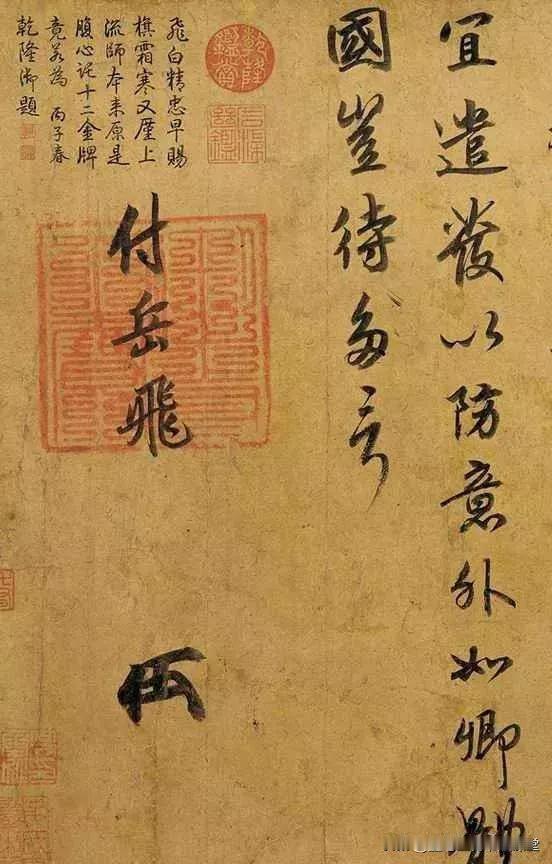 宜遣發以防意外如卿
國豈待多言
乾隆鑑賞
飛白精忠早賜
旗霜寒又歷上
流師本來原是
腹心託十二金牌
竟若為 丙子春
乾隆御題
付岳飛